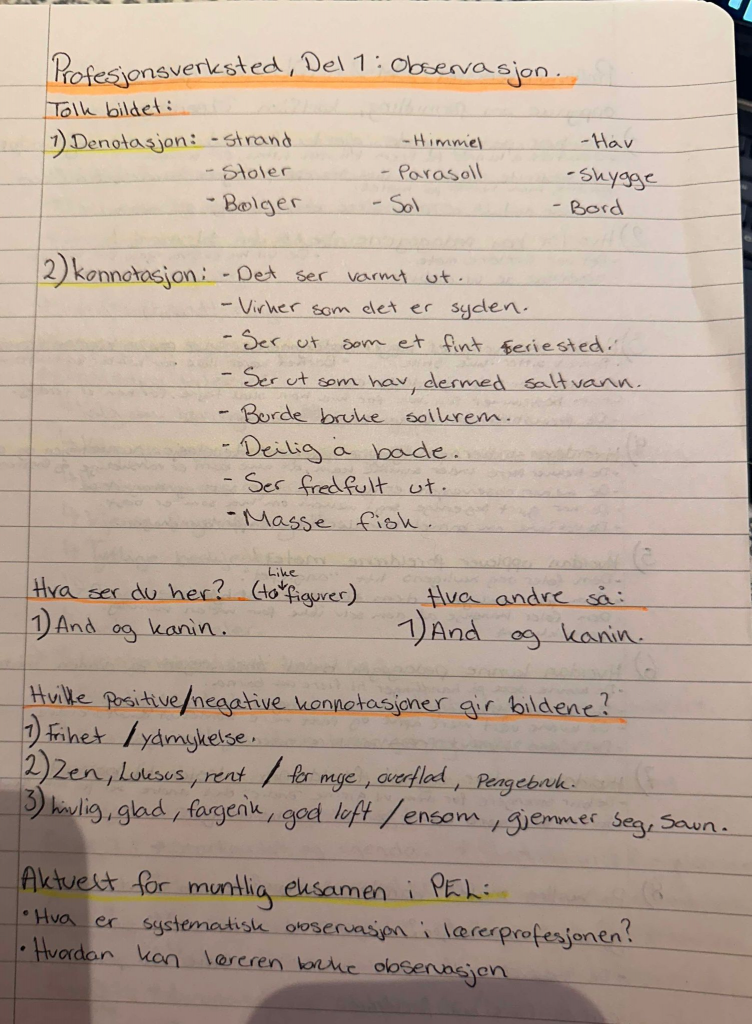 Profesjonsverksted, Del 1: Observasjon.
Tolk bildet:
1) Denotasjon: - Strand - Himmel - Hav
- Stoler - Parasoll - Skygge
- Bølger - Sol - Bord
2) Konnotasjon: - Det ser varmt ut.
- Virker som det er syden.
- Ser ut som et fint feriested.
- Ser ut som hav, dermed saltvann.
- Burde bruke solkrem.
- Deilig å bade.
- Ser fredfult ut.
- Masse fisk.
Like
Hva ser du her? (to figurer) Hva andre så:
1) And og kanin. 1) And og kanin.
Hvilke positive/negative konnotasjoner gir bildene?
1) Frihet / ydmykelse.
2) Zen, Luksus, rent / for mye, overflod, Pengebruk.
3) livlig, glad, fargerik, god luft / ensom, gjemmer seg, Savn.
Aktuelt for muntlig eksamen i PEL:
• Hva er systematisk observasjon i lærerprofesjonen?
• Hvordan kan læreren bruke observasjon